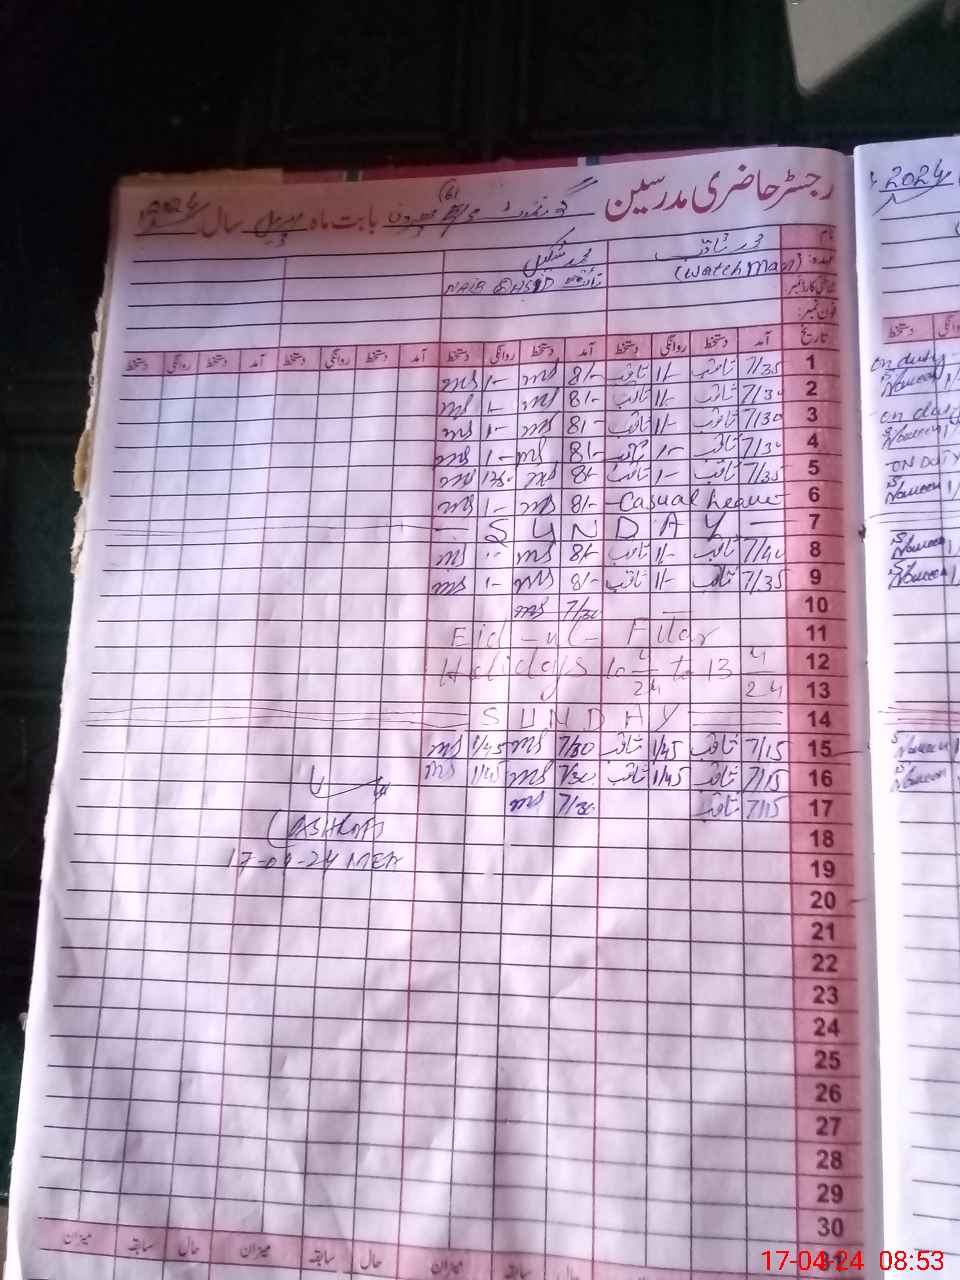 رجسٹر حاضری مدرسین بابت ماہ اپریل سال 2024
نام محمد ثاقب محمد شکیل
عہدہ (Watch Man) NAIB QASID نائب قاصد
شناختی کارڈ نمبر:
فون نمبر:
تاریخ آمد دستخط روانگی دستخط آمد دستخط روانگی دستخط آمد دستخط روانگی دستخط آمد دستخط روانگی دستخط
1 7/35 ثاقب 1/- ثاقب 8/- ms 1- ms
2 7/30 ثاقب 1/- ثاقب 8/- ms 1- ms
3 7/30 ثاقب 1/- ثاقب 8/- ms 1- ms
4 7/30 ثاقب 1- ثاقب 8/- ms 1- ms
5 7/35 ثاقب 1- ثاقب 8/- ms ms
6 Casual Leave 8/- ms 1- ms
7 SUNDAY
8 7/40 ثاقب 1/- ثاقب 8/- ms ms
9 7/35 ثاقب 1/- ثاقب 8/- ms 1- ms
10 7/30 ms
11 Eid-ul-Fitar
12 Holidays 10 4/24 to 13 4/24
13
14 SUNDAY
15 7/15 ثاقب 1/45 ثاقب 7/30 ms 1/45 ms
16 7/15 ثاقب 1/45 ثاقب 7/30 ms 1/45 ms
17 7/15 ثاقب 7/30 ms
18
(ASHRAF)
19
17-04-24 MEA
20
21
22
23
24
25
26
27
28
29
30
31
حال سابقہ میزان حال سابقہ میزان حال سابقہ میزان
2024
دستخط
on duty
Noureen
on duty
Noureen
ON DUTY
Noureen
Noureen
Noureen
Noureen
Noureen
17-04-24 08:53